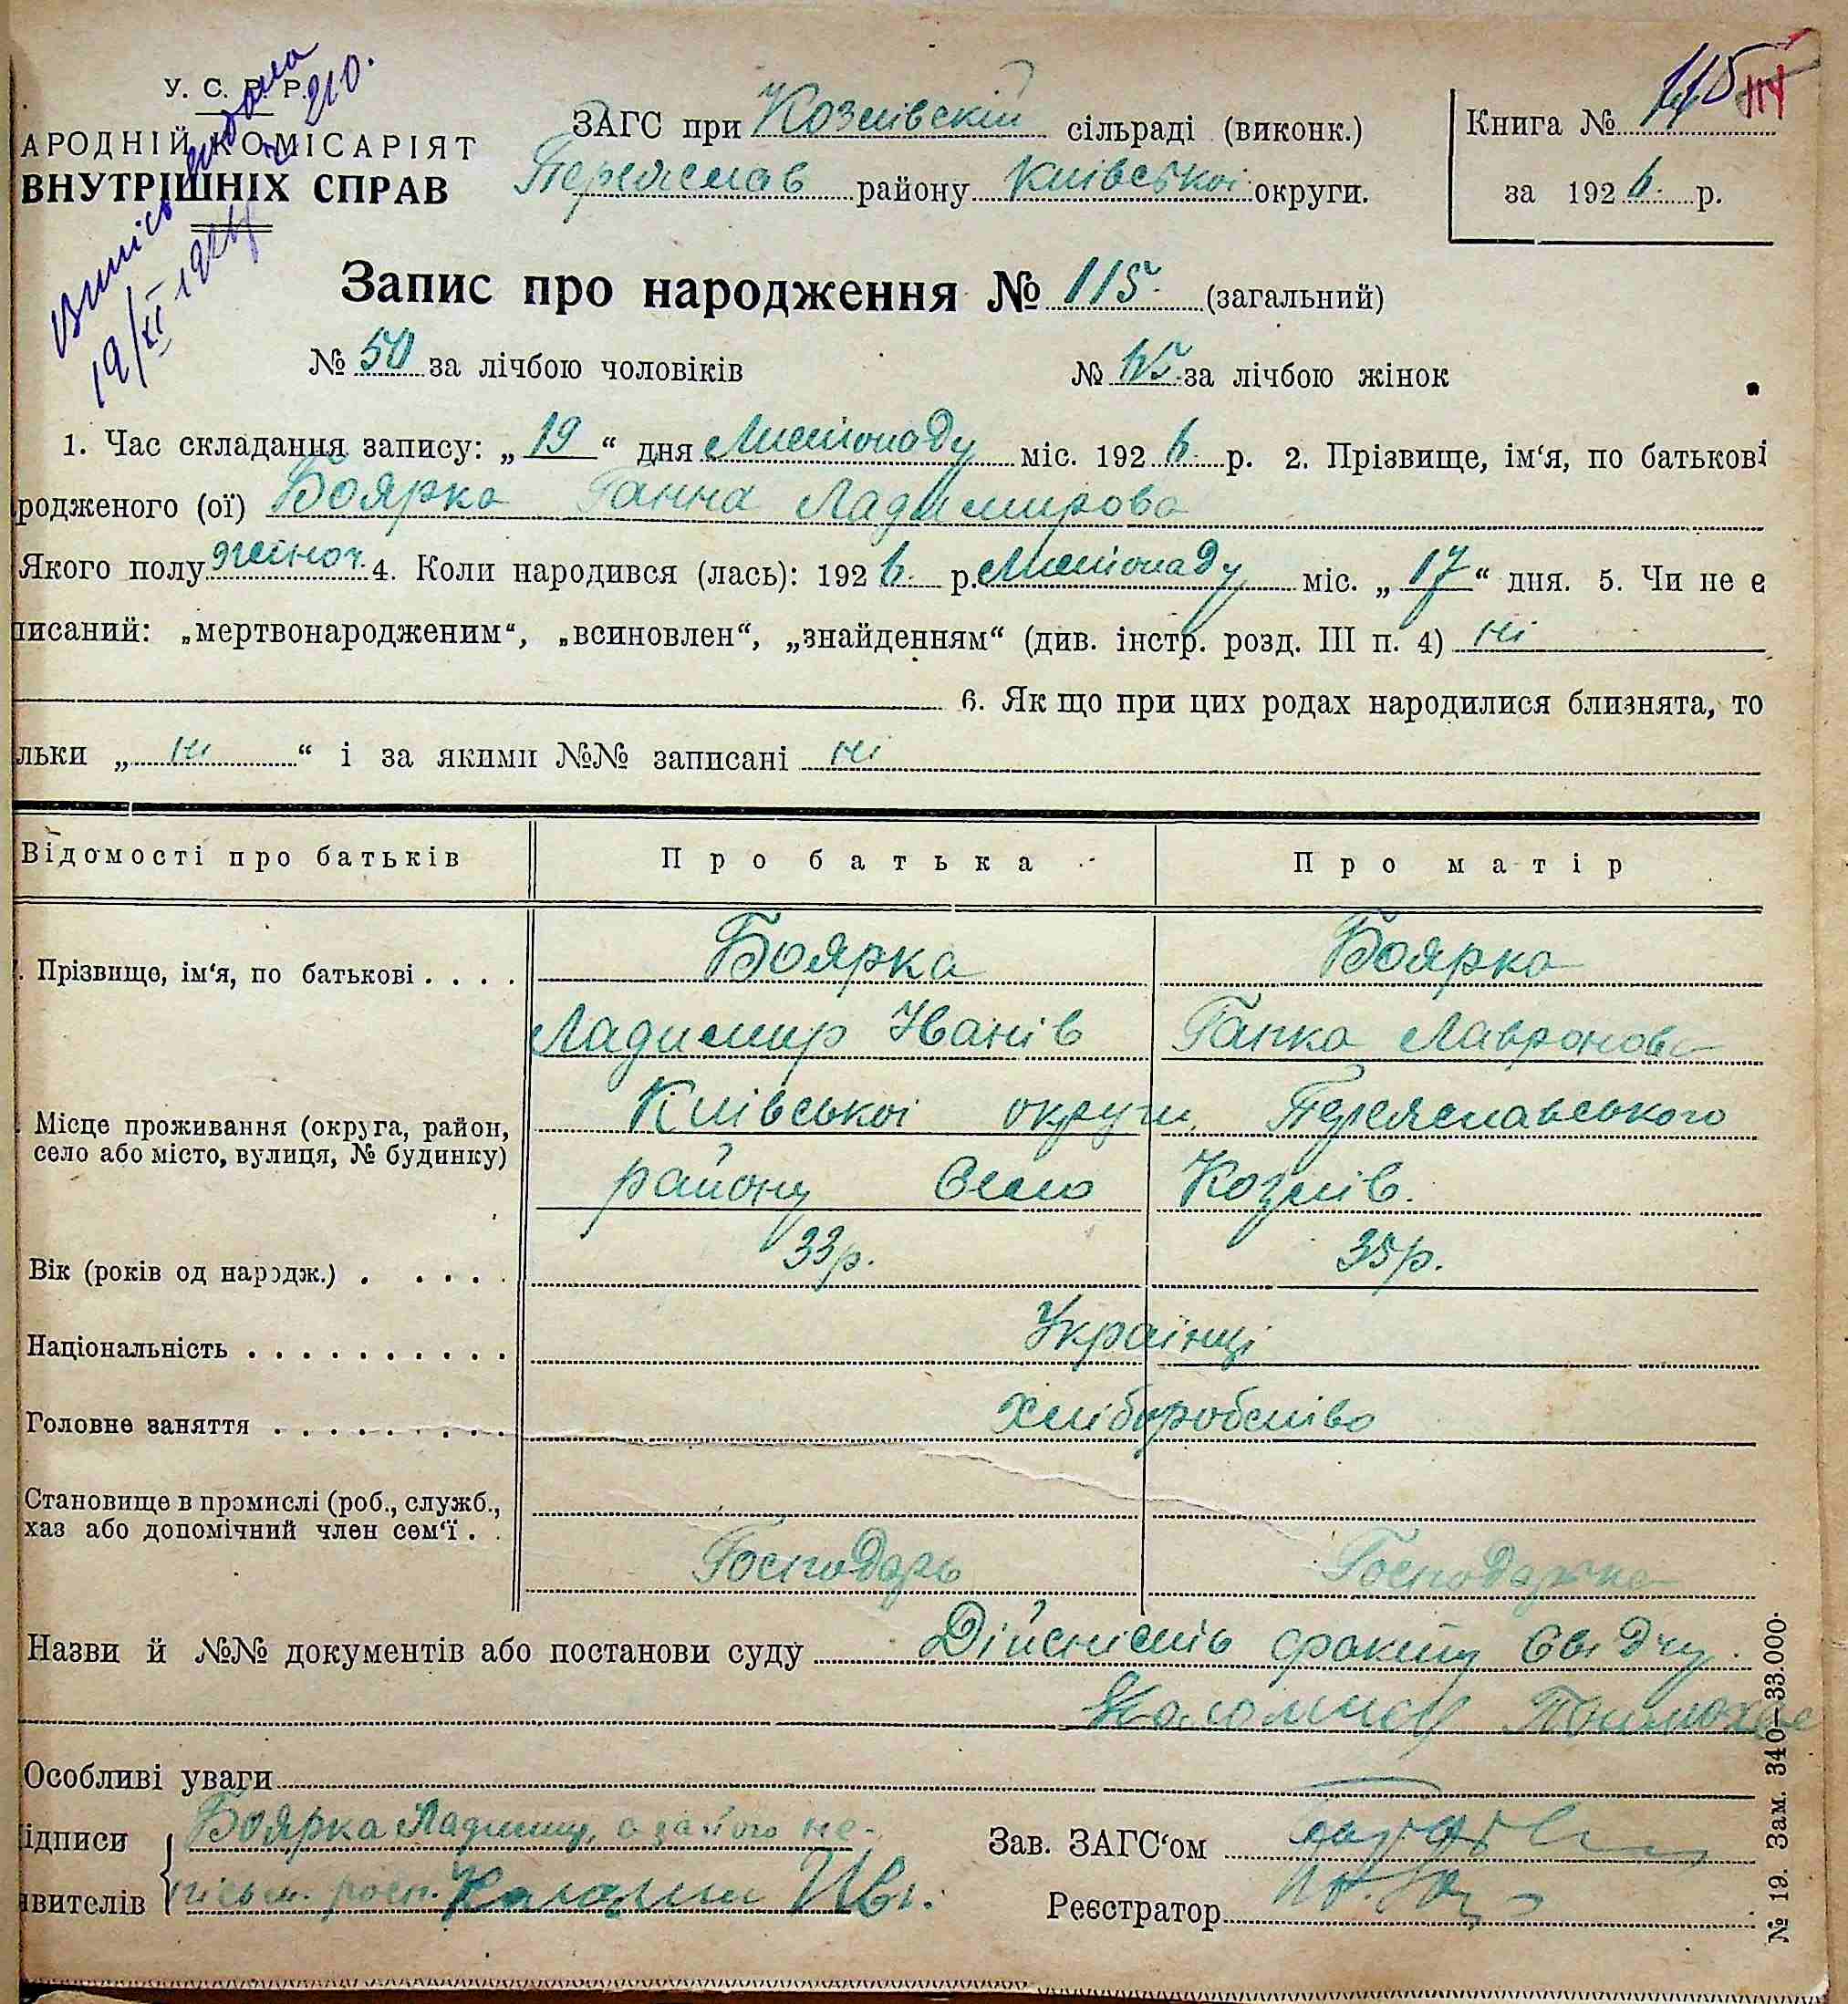 У. С. Р. Р.
АРОДНІЙ КОМІСАРІЯТ
ВНУТРІШНІХ СПРАВ
Випись видана
19/XI 192 210.
ЗАГС при Козлівскій сільраді (виконк.)
Переяслав району Київської округи.
Книга № 115 114
за 1926 р.
Запис про народження № 115 (загальний)
№ 50 за лічбою чоловіків
№ 65 за лічбою жінок
1. Час складання запису: „19“ дня Листопаду міс. 1926 р. 2. Прізвище, ім‘я, по батькові
родженого (ої) Боярка Ганна Ладимирова
Якого полу жіноч. 4. Коли народився (лась): 1926 р. Листопаду міс. „17“ дня. 5. Чи не є
писаний: „мертвонародженим“, „всиновлен“, „знайденням“ (див. інстр. розд. III п. 4) ні
6. Як що при цих родах народилися близнята, то
льки „ні“ і за якими №№ записані ні
Відомості про батьків Про батька Про матір
Прізвище, ім‘я, по батькові . . . . Боярка Боярка
Ладимир Іванів Гапка Лавронова
Місце проживання (округа, район, Київської округи, Переяславського
село або місто, вулиця, № будинку) району Село Козлів.
Вік (років од народж.) . . . . . 33р. 35р.
Національність . . . . . . . . . . Українці
Головне заняття . . . . . . . . . Хліборобство
Становище в промислі (роб., служб.,
хаз або допомічний член сем‘ї . . Господарь Господарька
Назви й №№ документів або постанови суду Дійсність факту свідчу
Особливі уваги
ідписи Боярка Ладимир, а за його не-
явителів письм. росп. Ив.
Зав. ЗАГС‘ом
Реєстратор
№ 19. Зам. 340—33.000.